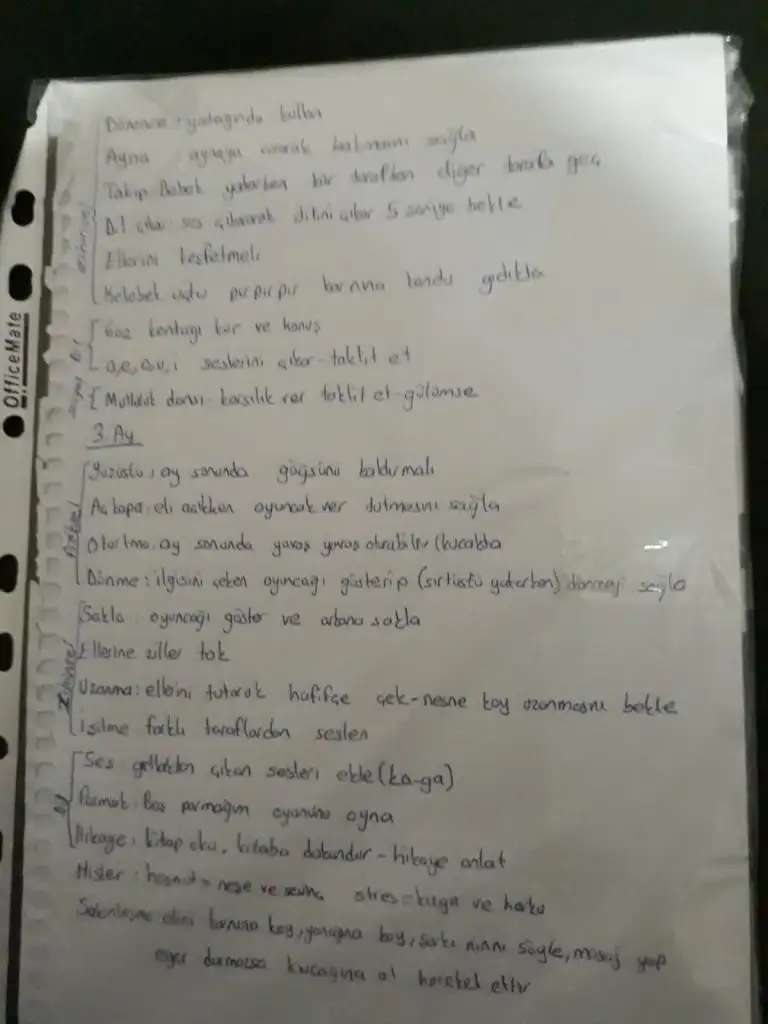 Dönence: yatağında kullan
Ayna aynaya vurarak bakmasını sağla
Takip Bebek yatarken bir taraftan diğer tarafa geç
Dil çıkar ses çıkararak dilini çıkar 5 saniye bekle
Ellerini keşfetmeli
Kelebek uçtu pır pır pır karnına kondu gıdıkla
Göz kontağı kur ve konuş
a,e,o,u,i seslerini çıkar - taklit et
Mutluluk dansı - karşılık ver taklit et - gülümse
3. Ay
Yüzüstü: ay sonunda göğsünü kaldırmalı
Aç kapa: eli açıkken oyuncak ver tutmasını sağla
Oturtma: ay sonunda yavaş yavaş oturabilir (kucakta
Dönme: ilgisini çeken oyuncağı gösterip (sırtüstü yatarken) dönmeyi sağla
Sakla: oyuncağı göster ve arkana sakla
Ellerine ziller tak
Uzanma: ellerini tutarak hafifçe çek - nesne koy uzanmasını bekle
işitme farklı taraflardan seslen
Ses gırtlaktan çıkan sesleri ekle (ka-ga)
Parmak: Baş parmağım oyununu oyna
Hikaye: kitap oku, kitaba dokundur - hikaye anlat
Hisler: = neşe ve sevinç stres = kaygı ve korku
Sakinleşme elini karnına koy, yanağına koy, şarkı ninni söyle, masaj yap
eğer durmazsa kucağına al hareket ettir
Fiziksel
Zihinsel
Dil
OfficeMate